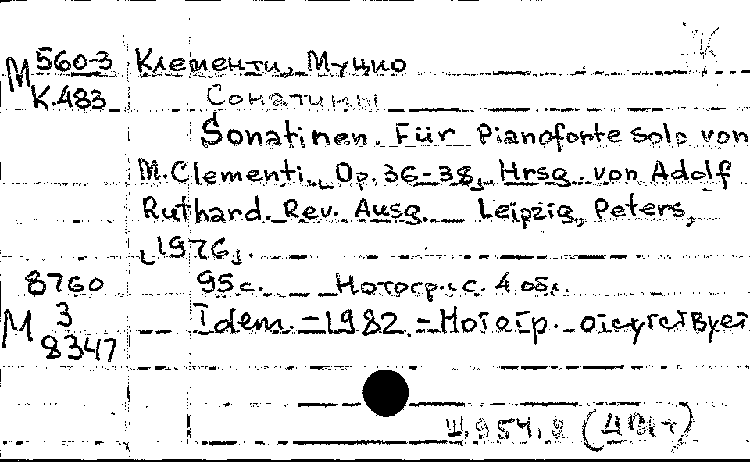 М 560-3 Клементи, Муцио
К.483 Сонатины
Sonatinen. Für Pianoforte solo von
M. Clementi. Op. 36-38. Hrsg. von Adolf
Ruthard. Rev. Ausg. Leipzig, Peters,
[1976].
8760 95 с. Нотогр.: с. 4 обл.
М 3 Idem. - 1982. - Нотогр. отсутствует
8347